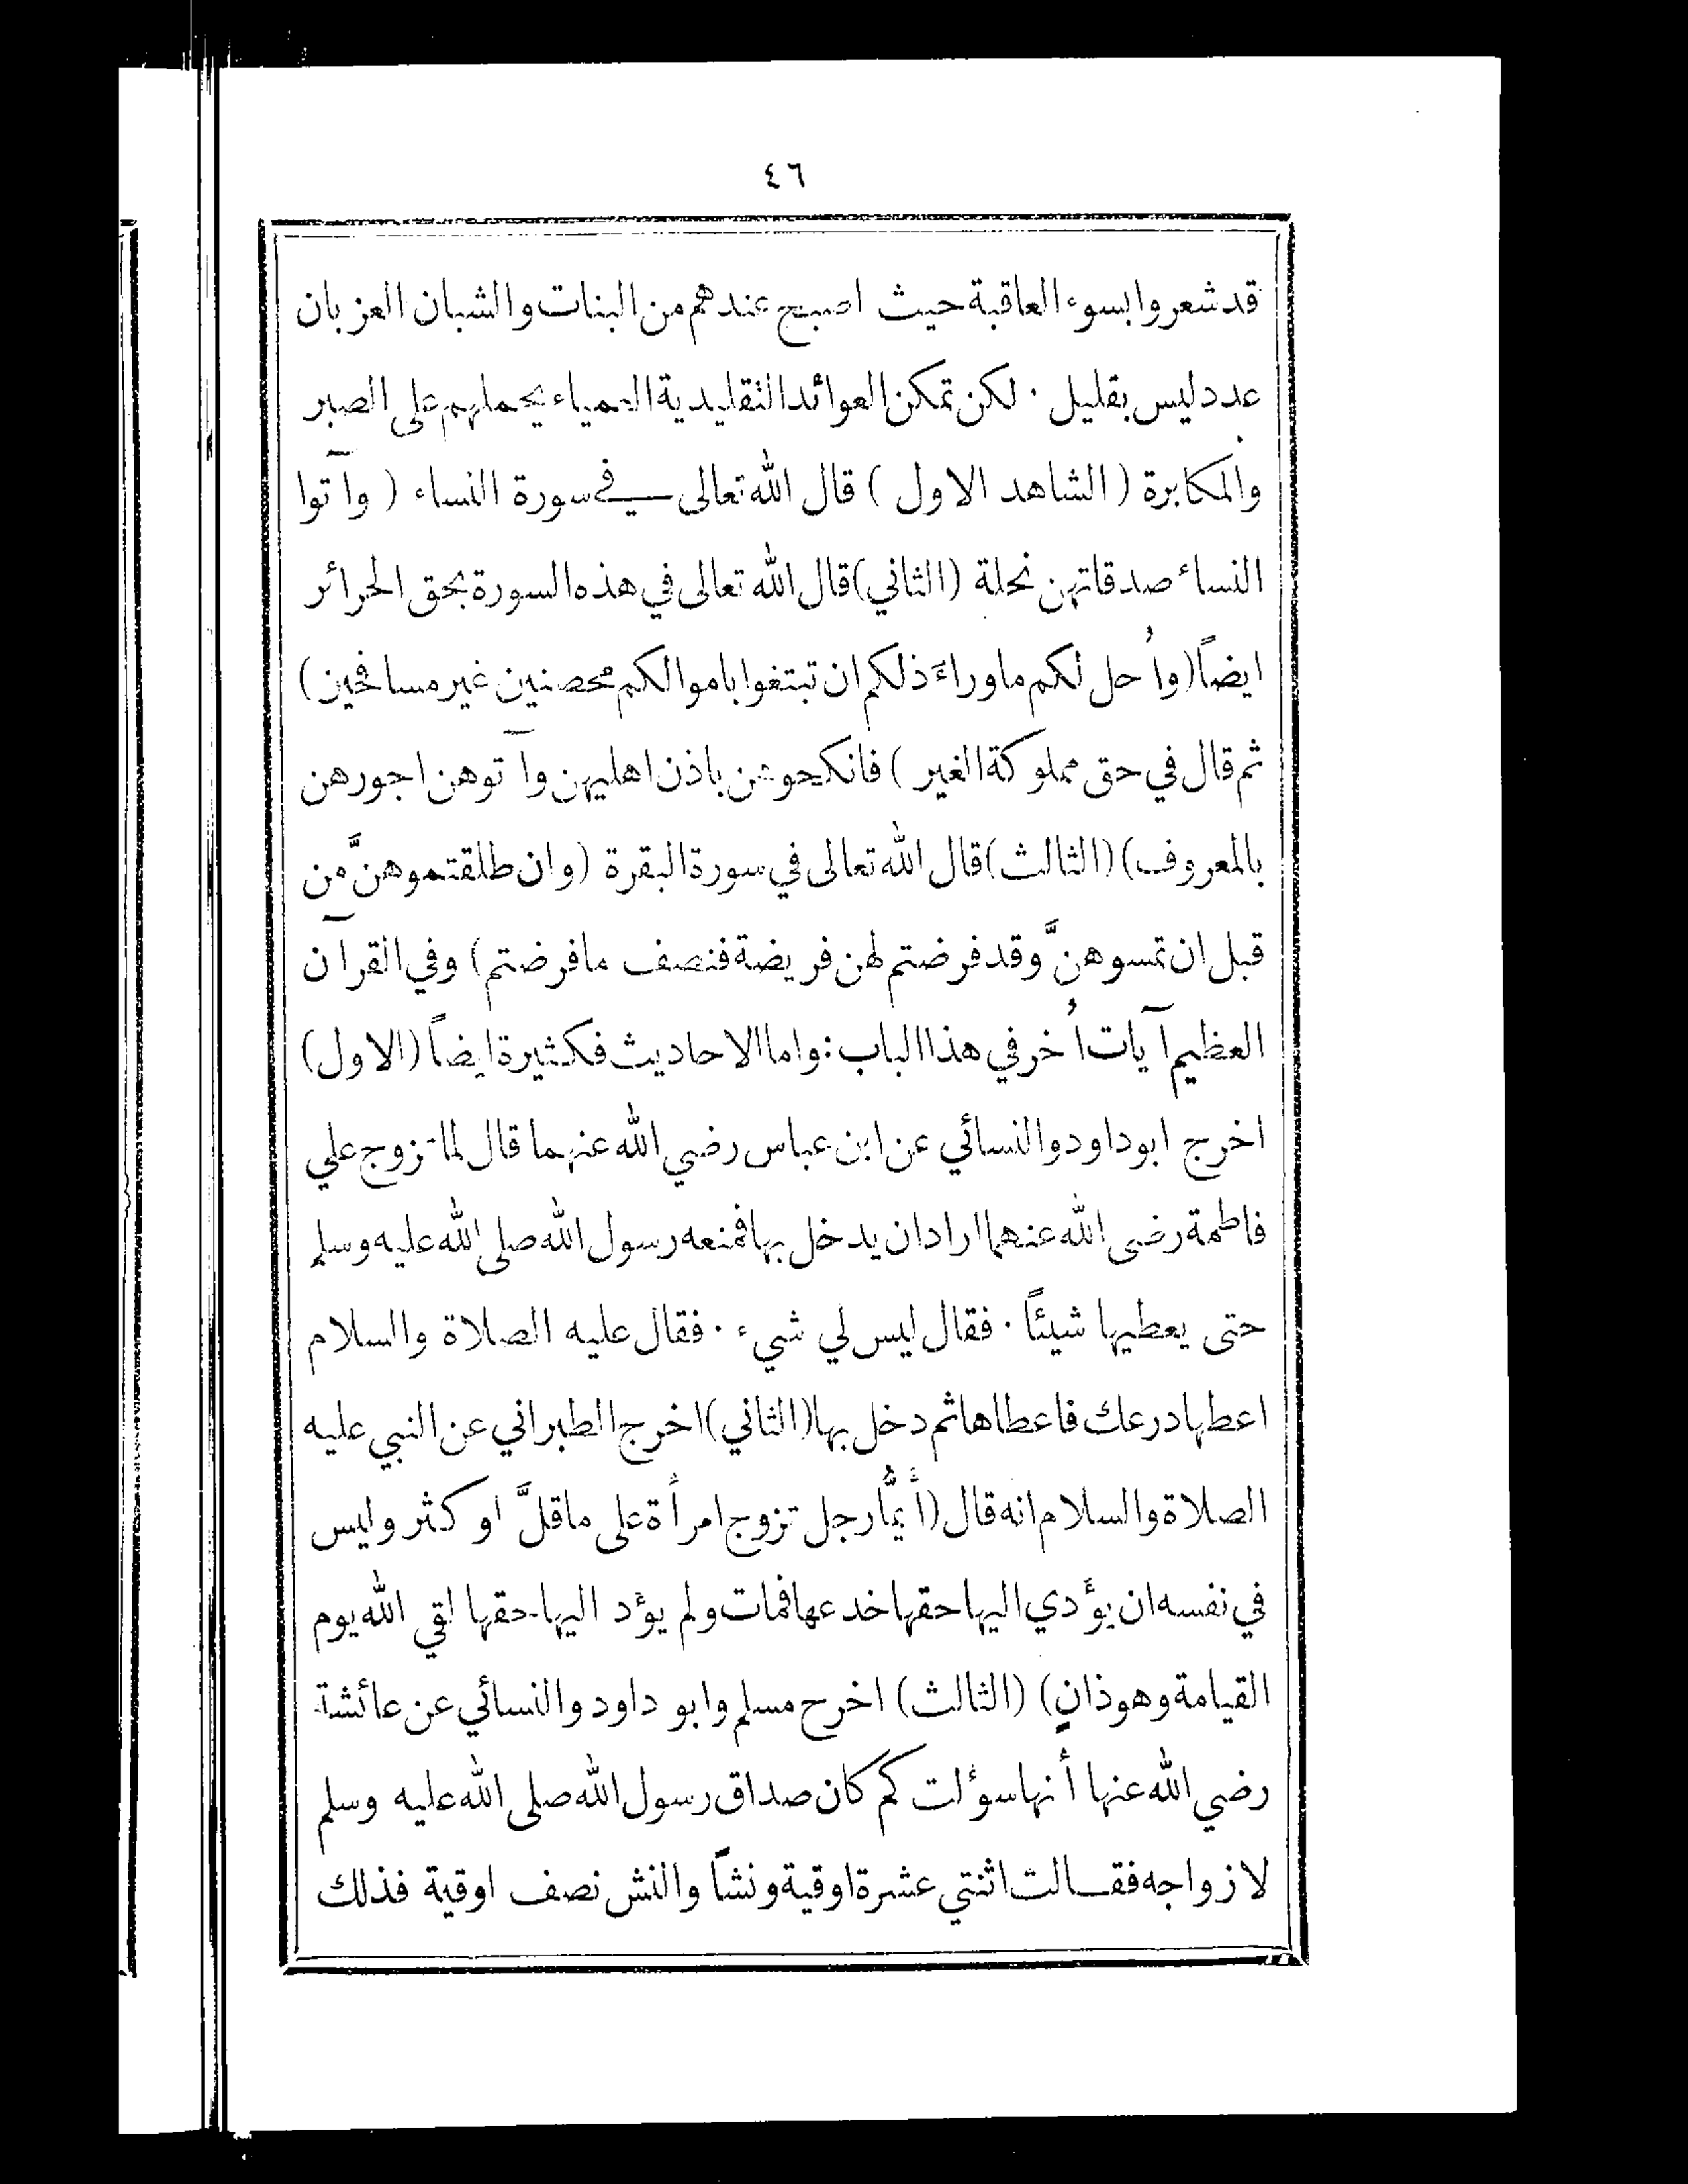 ٤٦
قد شعروا بسوء العاقبة حيث اصبح عندهم من البنات والشبان العزبان
عدد ليس بقليل · لكن تمكن العوائد التقليدية العمياء يحملهم على الصبر
والمكابرة ( الشاهد الاول ) قال الله تعالى في سورة النساء ( وآتوا
النساء صدقاتهن نحلة (الثاني) قال الله تعالى في هذه السورة بحق الحرائر
ايضاً (وأُحل لكم ما وراءَ ذلكم ان تبتغوا باموالكم محصنين غير مسافحين)
ثم قال في حق مملوكة الغير ) فانكحوهن باذن اهليهن وآتوهن اجورهن
بالمعروف) (الثالث) قال الله تعالى في سورة البقرة (وان طلقتموهنَّ من
قبل ان تمسوهنَّ وقد فرضتم لهن فريضة فنصف ما فرضتم) وفي القرآن
العظيم آيات أُخر في هذا الباب : واما الاحاديث فكثيرة ايضاً (الاول)
اخرج ابو داود والنسائي عن ابن عباس رضي الله عنهما قال لما تزوج علي
فاطمة رضى الله عنهما اراد ان يدخل بها فمنعه رسول الله صلى الله عليه وسلم
حتى يعطيها شيئاً · فقال ليس لي شيء · فقال عليه الصلاة والسلام
اعطها درعك فاعطاها ثم دخل بها (الثاني) اخرج الطبراني عن النبي عليه
الصلاة والسلام انه قال (أَيُّما رجل تزوج امرأَة على ما قلَّ او كثر وليس
في نفسه ان يؤَدي اليها حقها خدعها فمات ولم يؤَد اليها حقها لقي الله يوم
القيامة وهو زانٍ) (الثالث) اخرج مسلم وابو داود والنسائي عن عائشة
رضي الله عنها أَنها سؤلت كم كان صداق رسول الله صلى الله عليه وسلم
لازواجه فقالت اثنتي عشرة اوقية ونشاً والنش نصف اوقية فذلك